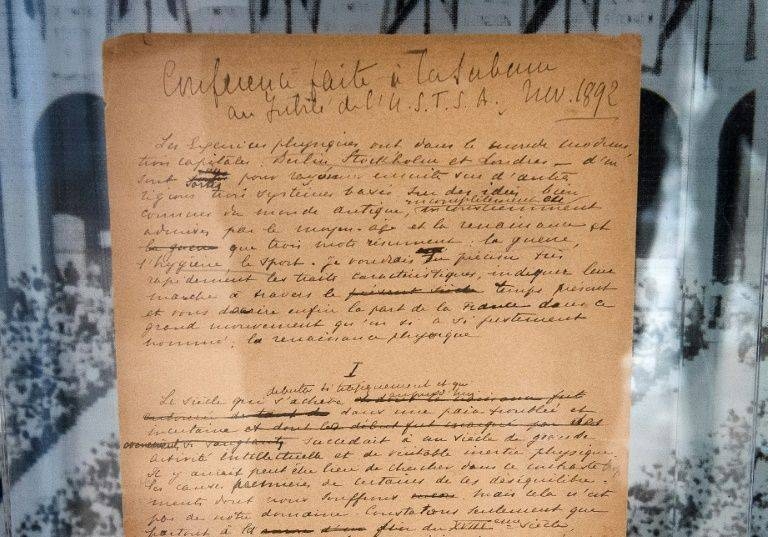 Conférence faite à la Sorbonne
au Jubilé de l'U.S.F.S.A. Nov. 1892
Les Exercices physiques ont dans le monde moderne
trois capitales : Berlin, Stockholm et Londres — d'où
sont sortis pour rayonner ensuite sur d'autres
régions trois systèmes basés sur des idées bien
incomplètement et
connues du monde antique, inconsciemment
admises par le moyen-age et la renaissance et
la guerre que trois mots résument : la guerre,
l'hygiène, le sport. Je voudrais en préciser très
rapidement les traits caractéristiques, indiquer leur
marche à travers le présent siècle temps présent
et vous dire enfin la part de la France dans ce
grand mouvement qu'on a si justement
nommé : la renaissance physique
I
débuter si tragiquement et qui
Le siècle qui s'achève fut
dans une paix troublée et
incertaine et dont les débuts fut marqué par des
si sanglants, succédait à un siècle de grande
activité intellectuelle et de véritable inertie physique.
Il y aurait peut être lieu de chercher dans ce contraste
les causes premières de certains de ces déséquilibre-
ments dont nous souffrons mais cela n'est
pas de notre domaine. Constatons seulement que
partout à la fin du XVIIIème siècle,